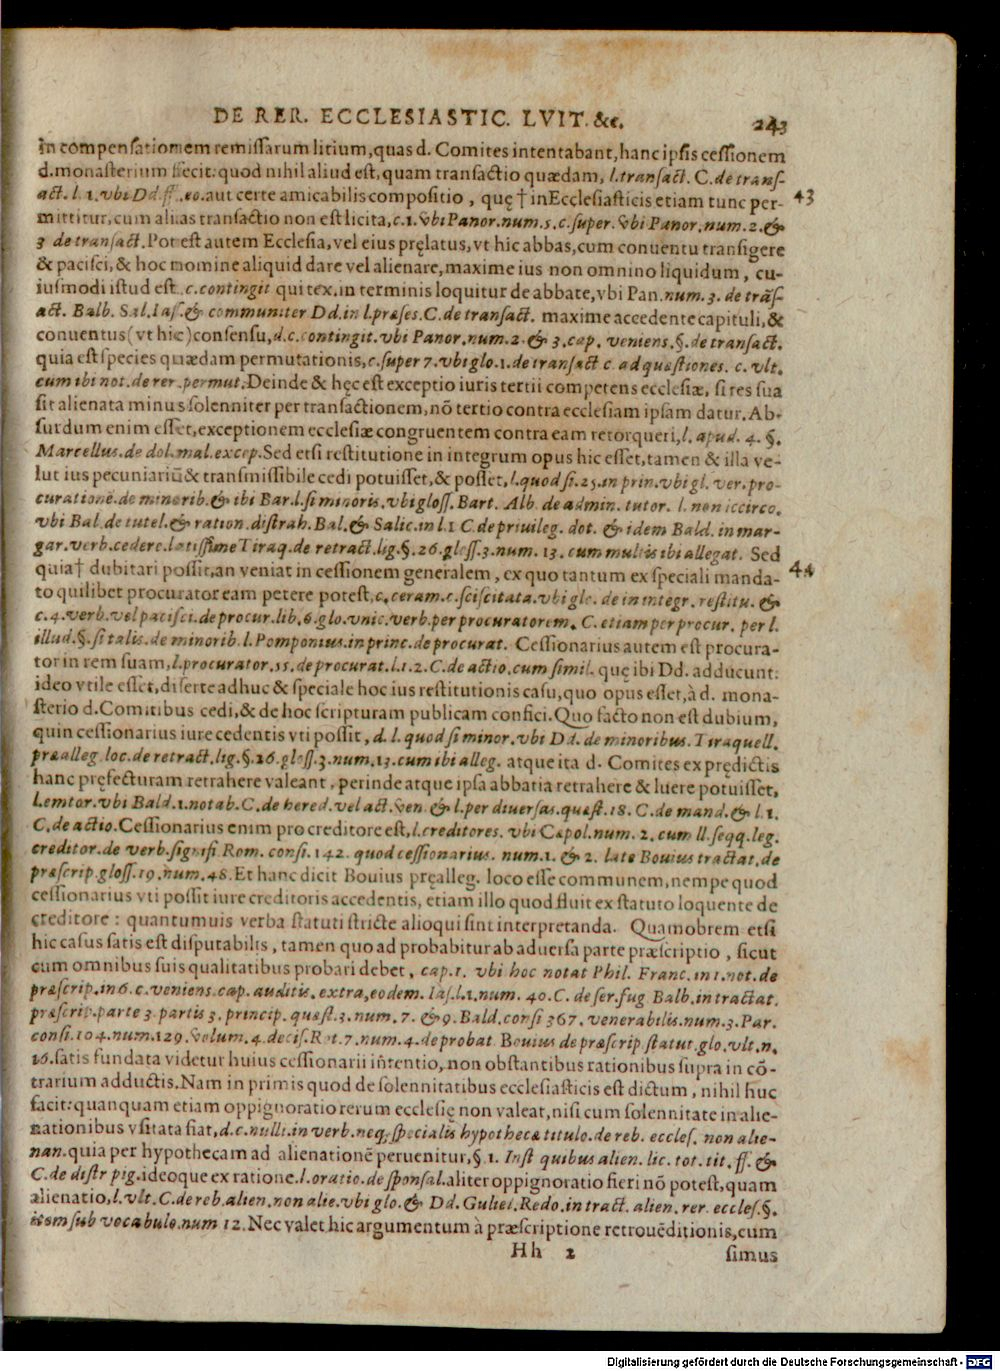 DE RER. ECCLESIASTIC. LVIT. &c. 243
in compensationem remissarum litium, quas d. Comites intentabant, hanc ipsis cessionem
d. monasterium fecit: quod nihil aliud est, quam transactio quædam, l. transact. C. de trans-
act. l. 1. vbi Dd. ff. eo. aut certe amicabilis compositio, quę † in Ecclesiasticis etiam tunc per- 43
mittitur, cum alias transactio non est licita, c. 1. vbi Panor. num. 5. c. super. vbi Panor. num. 2. &
3 de transact. Potest autem Ecclesia, vel eius pręlatus, vt hic abbas, cum conuentu transigere
& pacisci, & hoc nomine aliquid dare vel alienare, maxime ius non omnino liquidum, cu-
iusmodi istud est. c. contingit qui tex. in terminis loquitur de abbate, vbi Pan. num. 3. de trās-
act. Balb. Sal. Ias. & communiter Dd. in l. præses. C. de transact. maxime accedente capituli, &
conuentus (vt hic) consensu, d. c. contingit. vbi Panor. num. 2 & 3. cap. veniens. §. de transact.
quia est species quædam permutationis, c. super 7. vbi glo. 1. de transact c. ad quæstiones. c. vlt.
cum ibi not. de rer. permut. Deinde & hęc est exceptio iuris tertii competens ecclesiæ, si res sua
sit alienata minus solenniter per transactionem, nō tertio contra ecclesiam ipsam datur. Ab-
surdum enim esset, exceptionem ecclesiæ congruentem contra eam retorqueri, l. apud. 4. §.
Marcellus. de dol. mal. excep. Sed etsi restitutione in integrum opus hic esset, tamen & illa ve-
lut ius pecuniariū & transmissibile cedi potuisset, & posset, l. quod si. 25. in prin. vbi gl. ver. pro-
curatione. de minorib. & ibi Bar. l. si minoris. vbi gloss. Bart. Alb. de admin. tutor. l. non iccirco.
vbi Bal. de tutel. & ration. distrah. Bal. & Salic. in l. 1 C. de priuileg. dot. & idem Bald. in mar-
gar. verb. cedere. latissime Tiraq. de retract. lig. §. 26. gloss. 3. num. 13. cum multis ibi allegat. Sed
quia † dubitari possit, an veniat in cessionem generalem, ex quo tantum ex speciali manda- 44
to quilibet procurator eam petere potest, c. ceram. c. sciscitata. vbi glo. de in integr. restitu. &
c. 4. verb. vel pacisci. de procur. lib. 6. glo. vnic. verb. per procuratorem. C. etiam per procur. per l.
illud. §. si talis. de minorib. l. Pomponius. in princ. de procurat. Cessionarius autem est procura-
tor in rem suam, l. procurator. 55. de procurat. l. 1. 2. C. de actio. cum simil. quę ibi Dd. adducunt:
ideo vtile esset, diserte adhuc & speciale hoc ius restitutionis casu, quo opus esset, à d. mona-
sterio d. Comitibus cedi, & de hoc scripturam publicam confici. Quo facto non est dubium,
quin cessionarius iure cedentis vti possit, d. l. quod si minor. vbi Dd. de minoribus. Tiraquell.
præalleg. loc. de retract. lig. §. 26. gloss. 3. num. 13. cum ibi alleg. atque ita d. Comites ex prędictis
hanc pręfecturam retrahere valeant, perinde atque ipsa abbatia retrahere & luere potuisset,
l. emtor. vbi Bald. 1. notab. C. de hered. vel act. ven. & l. per diuersas. quæst. 18. C. de mand. & l. 1.
C. de actio. Cessionarius enim pro creditore est, l. creditores. vbi Capol. num. 2. cum ll. seqq. leg.
creditor. de verb. signifi Rom. consi. 142. quod cessionarius. num. 1. & 2. late Bouius tractat. de
præscrip. gloss. 19. num. 48. Et hanc dicit Bouius pręalleg. loco esse communem, nempe quod
cessionarius vti possit iure creditoris accedentis, etiam illo quod fluit ex statuto loquente de
creditore: quantumuis verba statuti stricte alioqui sint interpretanda. Quamobrem etsi
hic casus satis est disputabilis, tamen quo ad probabitur ab aduersa parte præscriptio, sicut
cum omnibus suis qualitatibus probari debet, cap. 1. vbi hoc notat Phil. Franc. in 1. not. de
præscrip. in 6. c. veniens. cap. auditis. extra, eodem. Ias. l. 1. num. 40. C. de ser. fug Balb. in tractat.
præscrip. parte 3. partis 3. princip. quæst. 3. num. 7. & 9. Bald. consi 367. venerabilis. num. 3. Par.
consi. 104. num. 129. volum. 4. decis. Rot. 7. num. 4. de probat. Bouius de præscrip. statut. glo. vlt. n.
16. satis fundata videtur huius cessionarii intentio, non obstantibus rationibus supra in cō-
trarium adductis. Nam in primis quod de solennitatibus ecclesiasticis est dictum, nihil huc
facit: quanquam etiam oppignoratio rerum ecclesię non valeat, nisi cum solennitate in alie-
nationibus vsitata fiat, d. c. nulli. in verb. neq; specialis hypotheca titulo. de reb. eccles. non alie-
nan. quia per hypothecam ad alienationē peruenitur, § 1. Inst quibus alien. lic. tot. tit. ff. &
C. de distr pig. ideoque ex ratione. l. oratio. de sponsal. aliter oppignoratio fieri nō potest, quam
alienatio, l. vlt. C. de reb. alien. non alie. vbi glo. & Dd. Guliel. Redo. in tract. alien. rer. eccles. §.
item sub vocabulo. num 12. Nec valet hic argumentum à præscriptione retrouēditionis, cum
Hh 2 simus
Digitalisierung gefördert durch die Deutsche Forschungsgemeinschaft - DFG